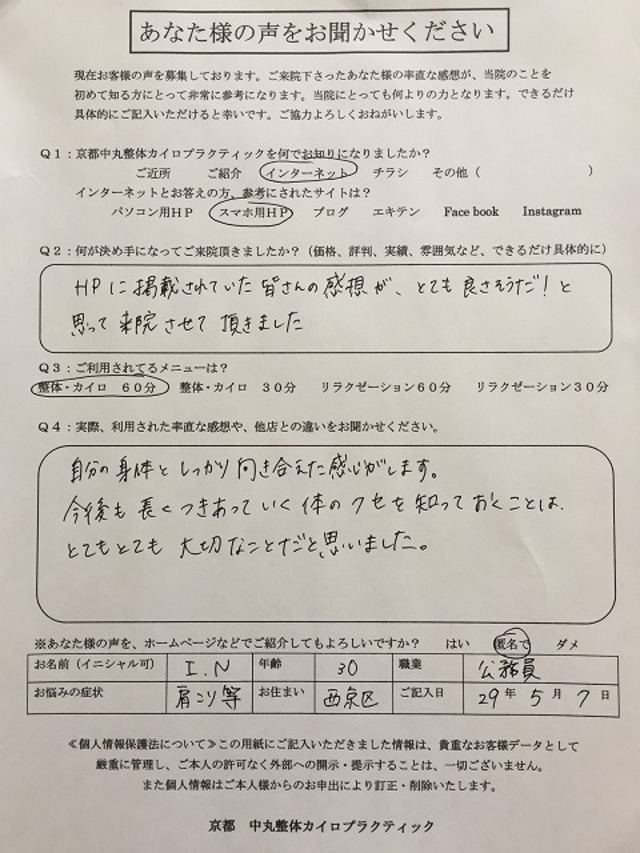 あなた様の声をお聞かせください
現在お客様の声を募集しております。ご来院下さったあなた様の率直な感想が、当院のことを
初めて知る方にとって非常に参考になります。当院にとっても何よりの力となります。できるだけ
具体的にご記入いただけると幸いです。ご協力よろしくおねがいします。
Q1：京都中丸整体カイロプラクティックを何でお知りになりましたか？
ご近所 ご紹介 インターネット チラシ その他（ ）
インターネットとお答えの方、参考にされたサイトは？
パソコン用HP スマホ用HP ブログ エキテン Face book Instagram
Q2：何が決め手になってご来院頂きましたか？（価格、評判、実績、雰囲気など、できるだけ具体的に）
HPに掲載されていた皆さんの感想が、とても良さそうだ！と
思って来院させて頂きました
Q3：ご利用されてるメニューは？
整体・カイロ 60分 整体・カイロ 30分 リラクゼーション60分 リラクゼーション30分
Q4：実際、利用された率直な感想や、他店との違いをお聞かせください。
自分の身体としっかり向き合えた感じがします。
今後も長くつきあっていく体のクセを知っておくことは、
とてもとても大切なことだと思いました。
※あなた様の声を、ホームページなどでご紹介してもよろしいですか？ はい 匿名で ダメ
お名前（イニシャル可） I.N 年齢 30 職業 公務員
お悩みの症状 肩こり等 お住まい 西京区 ご記入日 29年5月7日
≪個人情報保護法について≫この用紙にご記入いただきました情報は、貴重なお客様データとして
厳重に管理し、ご本人の許可なく外部への開示・提示することは、一切ございません。
また個人情報はご本人様からのお申出により訂正・削除いたします。
京都 中丸整体カイロプラクティック